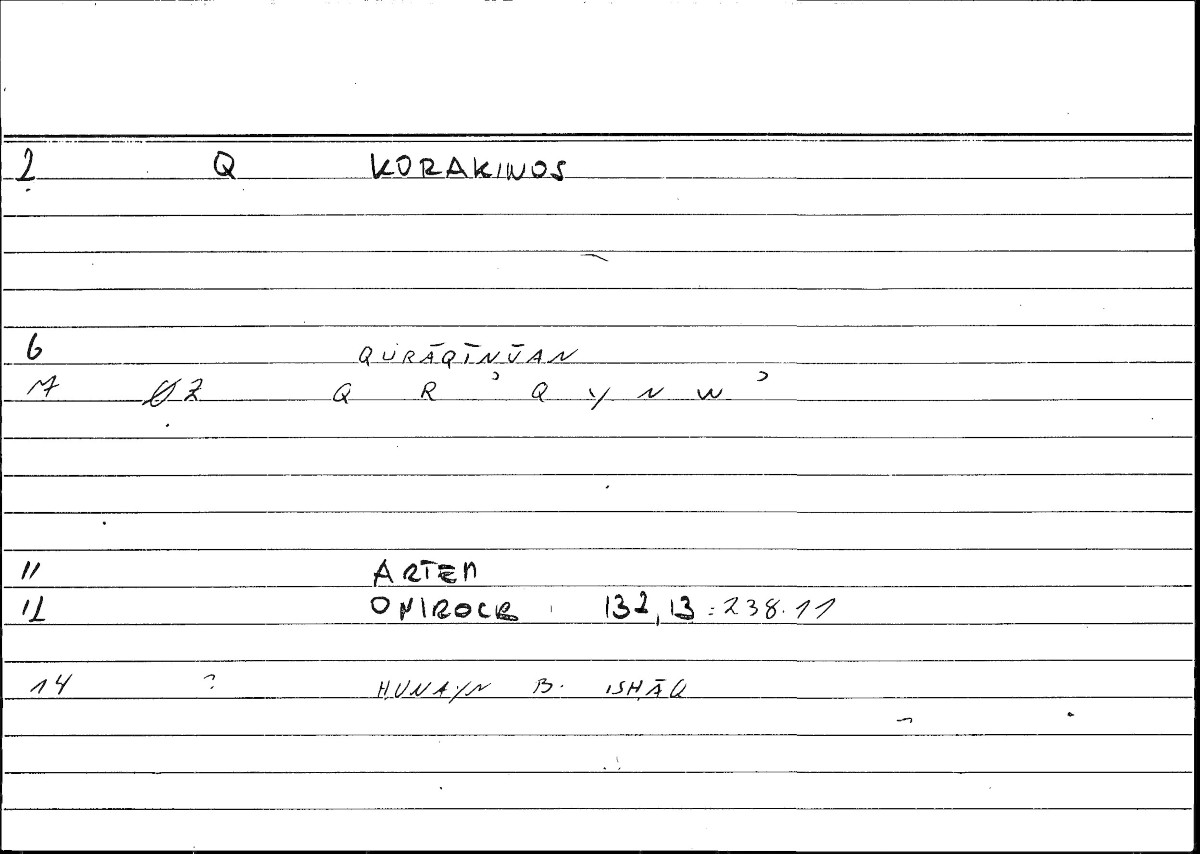 2 Q KORAKINOS
6 QŪRĀQĪNŪAN
7 Z Q R ʾ Q Y N W ʾ
11 ARTEM
12 ONIROCR 132,13 : 238.11
14 ? HUNAYN B. ISHĀQ